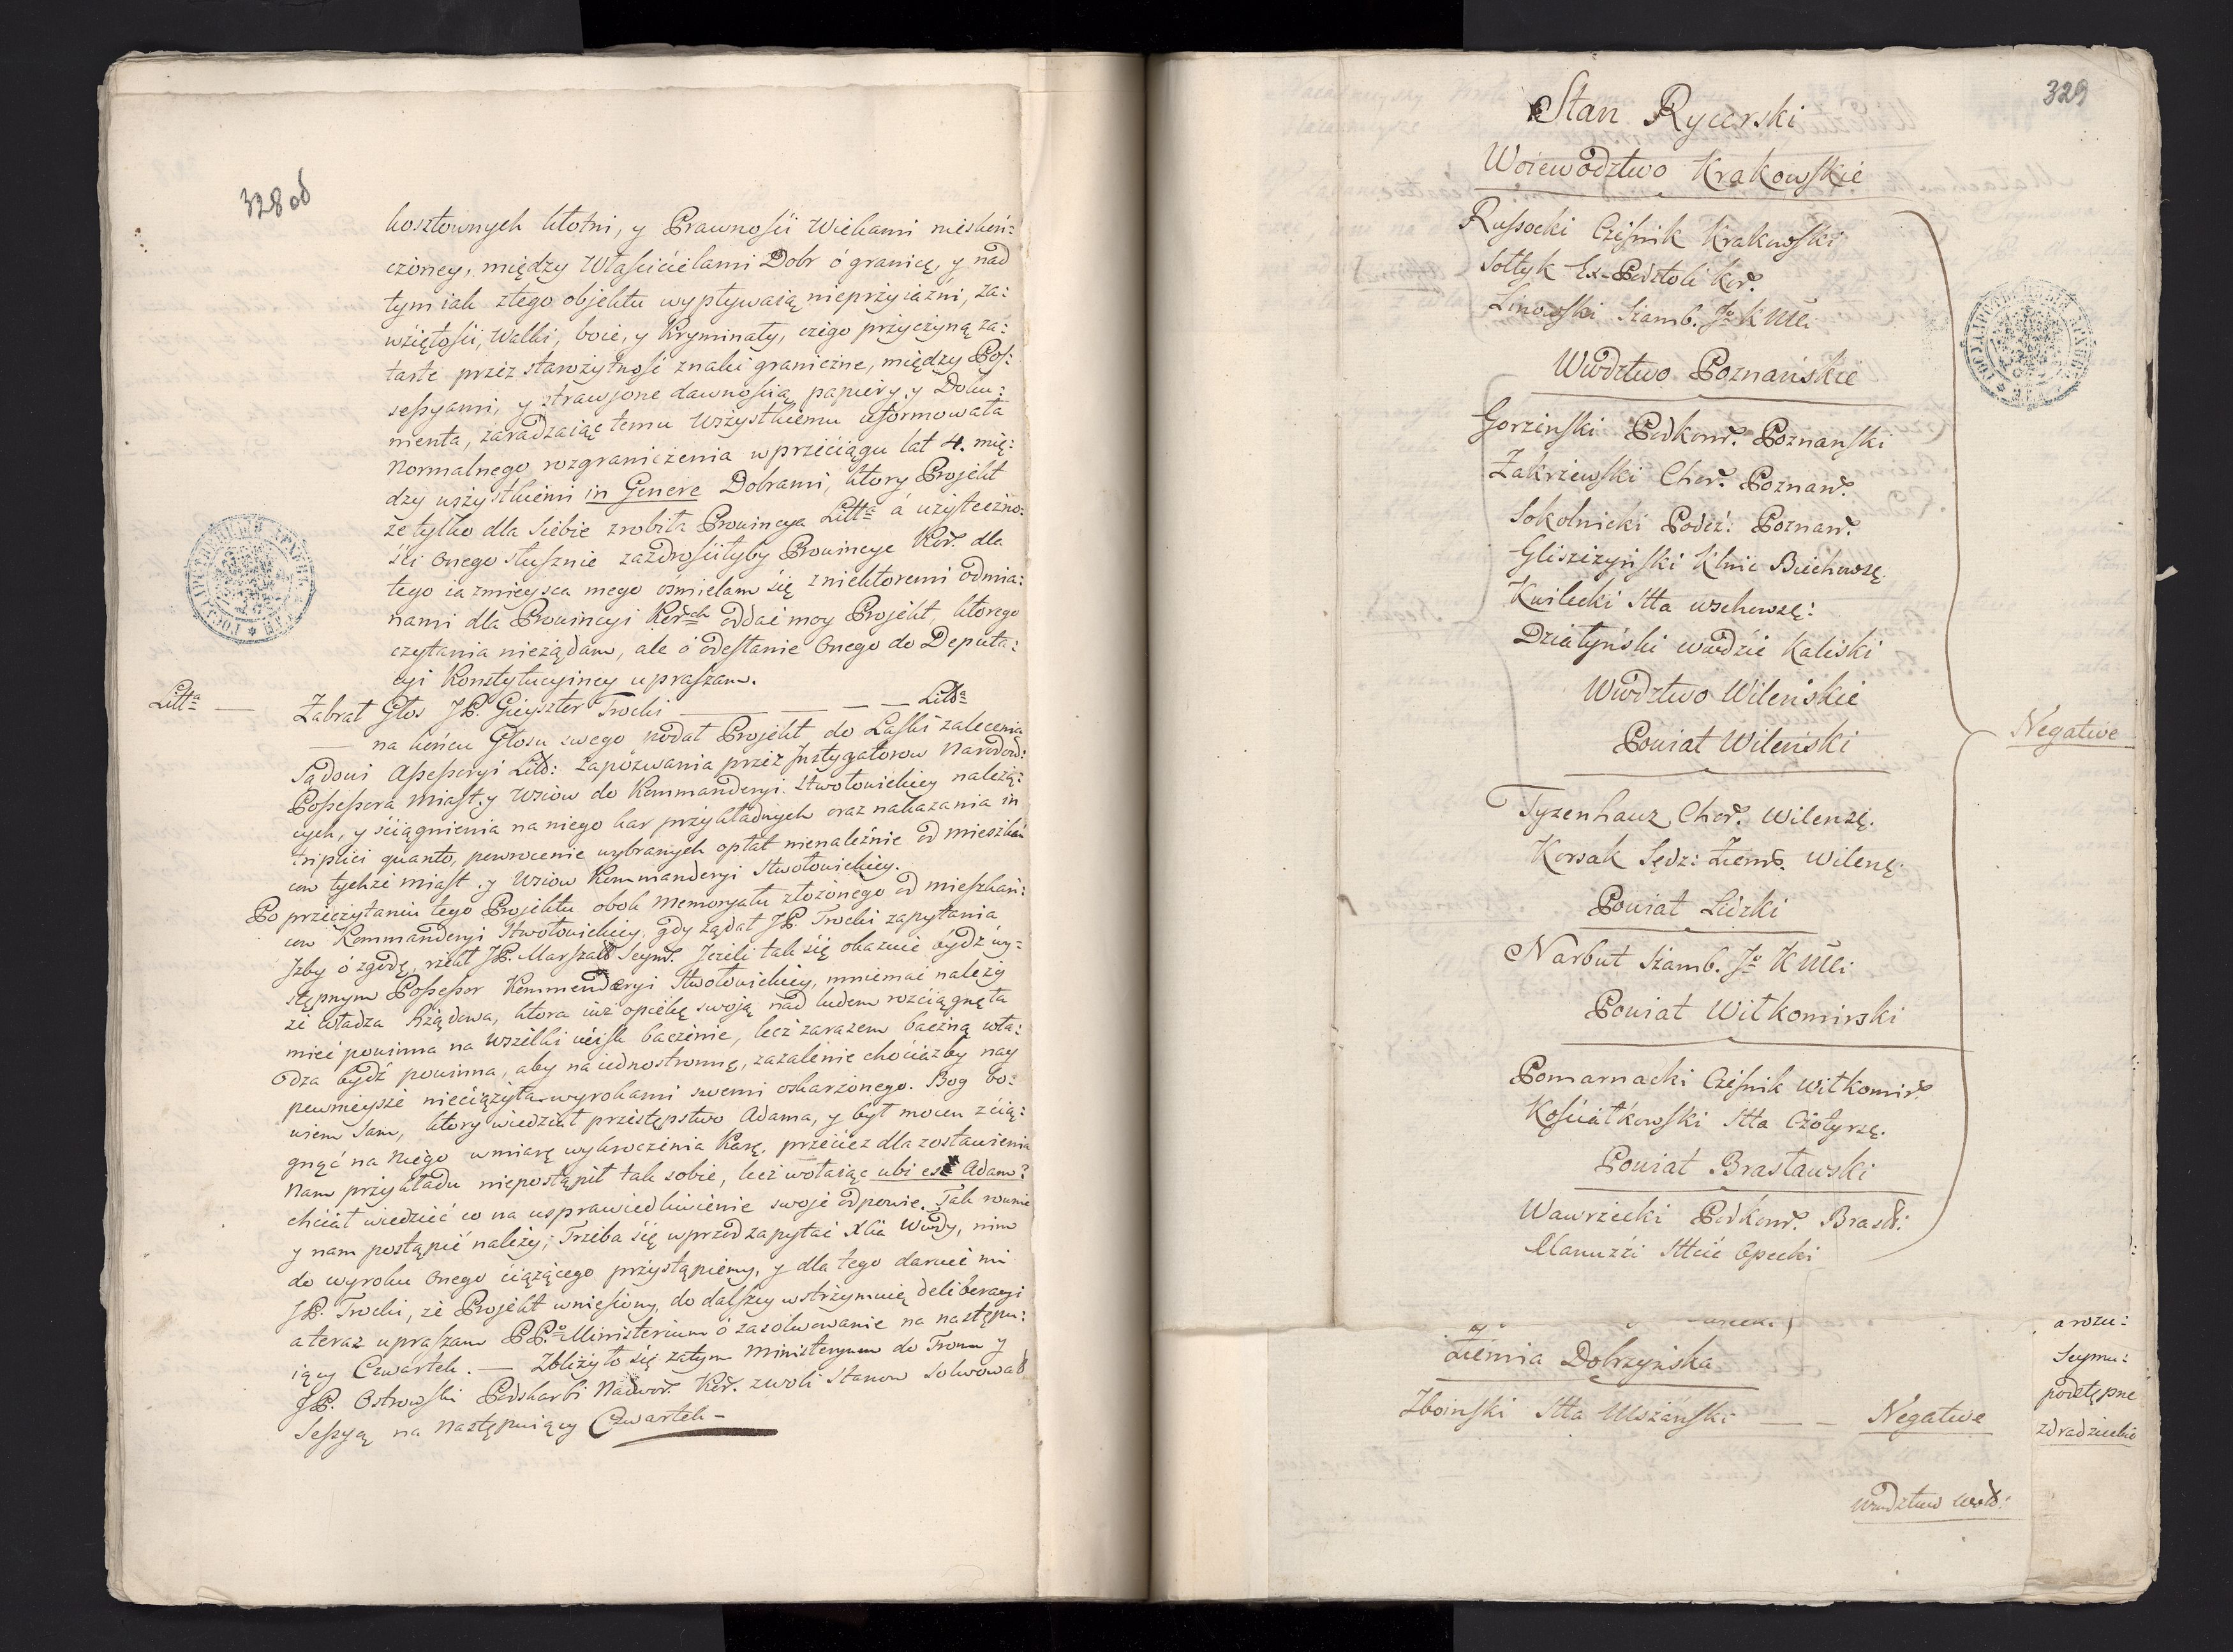 328 od
kosztownych kłotni, y Prawnosci Wiekami nieskoń:
czoney, między Właścicielami Dobr ó granicę, y nad
tym iak z tego objektu wypływaią nieprzyiaźni, za:
wziętosci, Walki, boie, y Kryminały, czego przyczyną za:
tarte przez starożytność znaki graniczne, między Pos:
sessyami, y strawione dawnoscią papiery, y Doku:
menta, zaradzaiąc temu wszystkiemu uformowała
Normalnego rozgraniczenia w przeciągu lat 4. mię:
dzy wszystkiemi in Genere Dobrami, ktory Projekt
że tylko dla siebie zrobiła Prowincya Litta á użyteczno:
ści onego słusznie zazdrosciłyby Prowincye Kor. dla
tego ia z mieysca mego ośmielam się z niektoremi odmia:
nami dla Prowincyi Kornch oddać moy Projekt, ktorego
czytania nieżądam, ale ó odesłanie onego do Deputa:
cyi Konstytucyiney upraszam.
Litta — Zabrał Głos JP. Gieysztor Trocki — — — Litta
— na końcu Głosu swego podał Projekt do Laski zalecenia
Sądowi Assessoryi Litt: Zapozwania przez Instygatorow Narodow:
Possessora Miast, y Wsiow do Kommanderyi Stwołowickiey należą:
cych, y ściągnienia na niego kar przykładnych oraz nakazania in
triplici quanto, powrocenie wybranych opłat nienależnie od mieszkań
cow tychże miast, y Wsiow Kommanderyi Stwołowickiey.
Po przeczytaniu tego Projektu obok Memoryału złożonego od mieszkań:
cow Kommanderyi Stwołowickiey, gdy żądał JP. Trocki zapytania
Izby ó zgodę, rzekł JP. Marszałk Seym. Jeżeli tak się okazuie bydź wy=
stępnym Possessor Kommenderyi Stwołowickiey, mniemać należy
że władza Rządowa, ktora iuż opiekę swoią nad ludem rozciągnęła
mieć powinna na wszelki ucisk baczenie, lecz zarazem baczną wła:
dza bydź powinna, aby na iednostronne, zażalenie chociażby nay
pewnieysze nieciążyła wyrokami swemi oskarżonego. Bog bo:
wiem sam, ktory wiedział przestępstwo Adama, y był mocen ścią:
gnąć na Niego w miarę wykroczenia Karę, przecież dla zostawienia
Nam przykładu niepostąpił tak sobie, lecz wołaiąc ubi est Adam?
chciał wiedzieć co na usprawiedliwienie swoje odpowie. Tak rownie
y nam postąpić należy; Trzeba się wprzod zapytać Xcia Wwdy, nim
do wyroku onego ciążącego przystąpiemy, y dla tego daruie mi
JP. Trocki, że Projekt wniesiony, do dalszey wstrzymuię deliberacyi
a teraz upraszam PP. Ministerium ó zasolwowanie na następu:
iący Czwartek. — Zbliżyło się zatym Ministeryum do Tronu y
JP. Ostrowski Podskarbi Nadwor. Kor. z woli Stanow solwował
Sessyą na następuiący Czwartek —
329
Stan Rycerski
Woiewodztwo Krakowskie
Russocki Cześnik Krakowski
Sołtyk Ex-Podstoli Kor.
Linowski Szamb. Jo K Mci
Wwdztwo Poznańskie
Gorzenski Podkom. Poznanski
Zakrzewski Chor. Poznan.
Sokolnicki Podcz: Poznan.
Gliszczyński Kłnic Biechowsę.
Kwilecki Stta wschowsę:
Działyński wwdzic Kaliski
Wwdztwo Wileńskie
Powiat Wileński
Negative
Tyzenhauz Chor. Wilensę.
Korsak Sędz: Ziems. Wilenę.
Powiat Lidzki
Narbut Szamb. Jo K Mci
Powiat Wiłkomirski
Pomarnacki Cześnik Wiłkomir.
Kościałkowski Stta Czotyrsę.
Powiat Brasławski
Wawrzecki Podkom. Brasł:
Manuzzi Sttic Opecki
Ziemia Dobrzyńska
Zboinski Stta Mszański — — Negative
Wwdztwo Woł:
a rozu:
Seymu:
podstępne
zdradzieckie